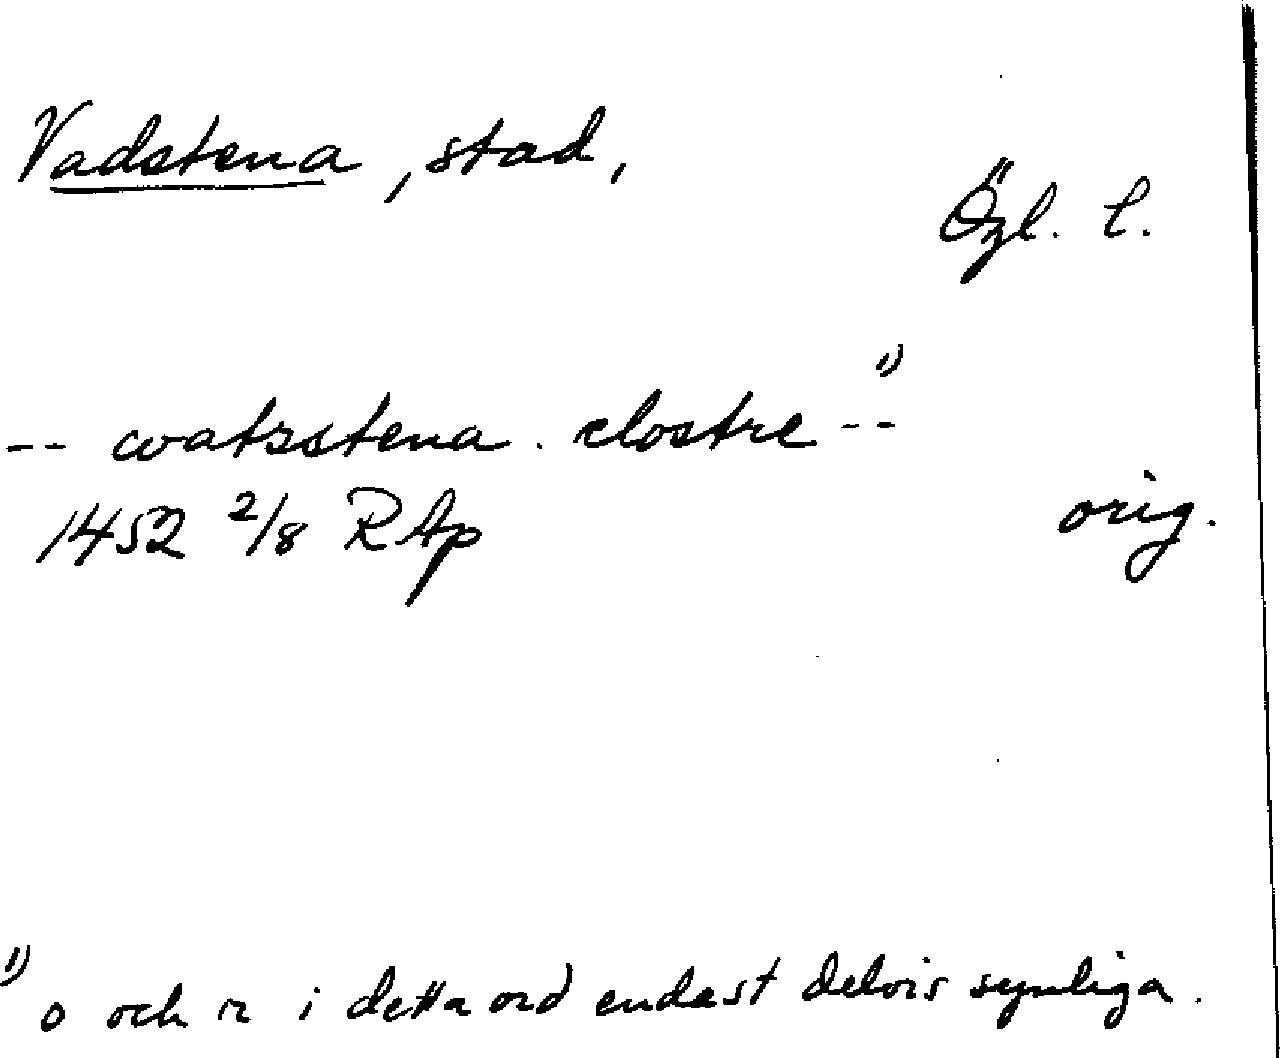 Vadstena, stad,
Ögl. l.
-- watzstena. clostre -- 1)
1452 2/8 RAp
orig.
1) o och r i detta ord endast delvis synliga.